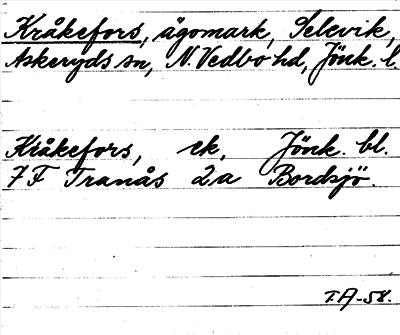 Kråkefors, ägomark, Selevik,
Askeryds sn, N. Vedbo hd, Jönk. l.
Kråkefors, ek. Jönk. bl.
7 F Tranås 2a Bordsjö.
T.A-58.